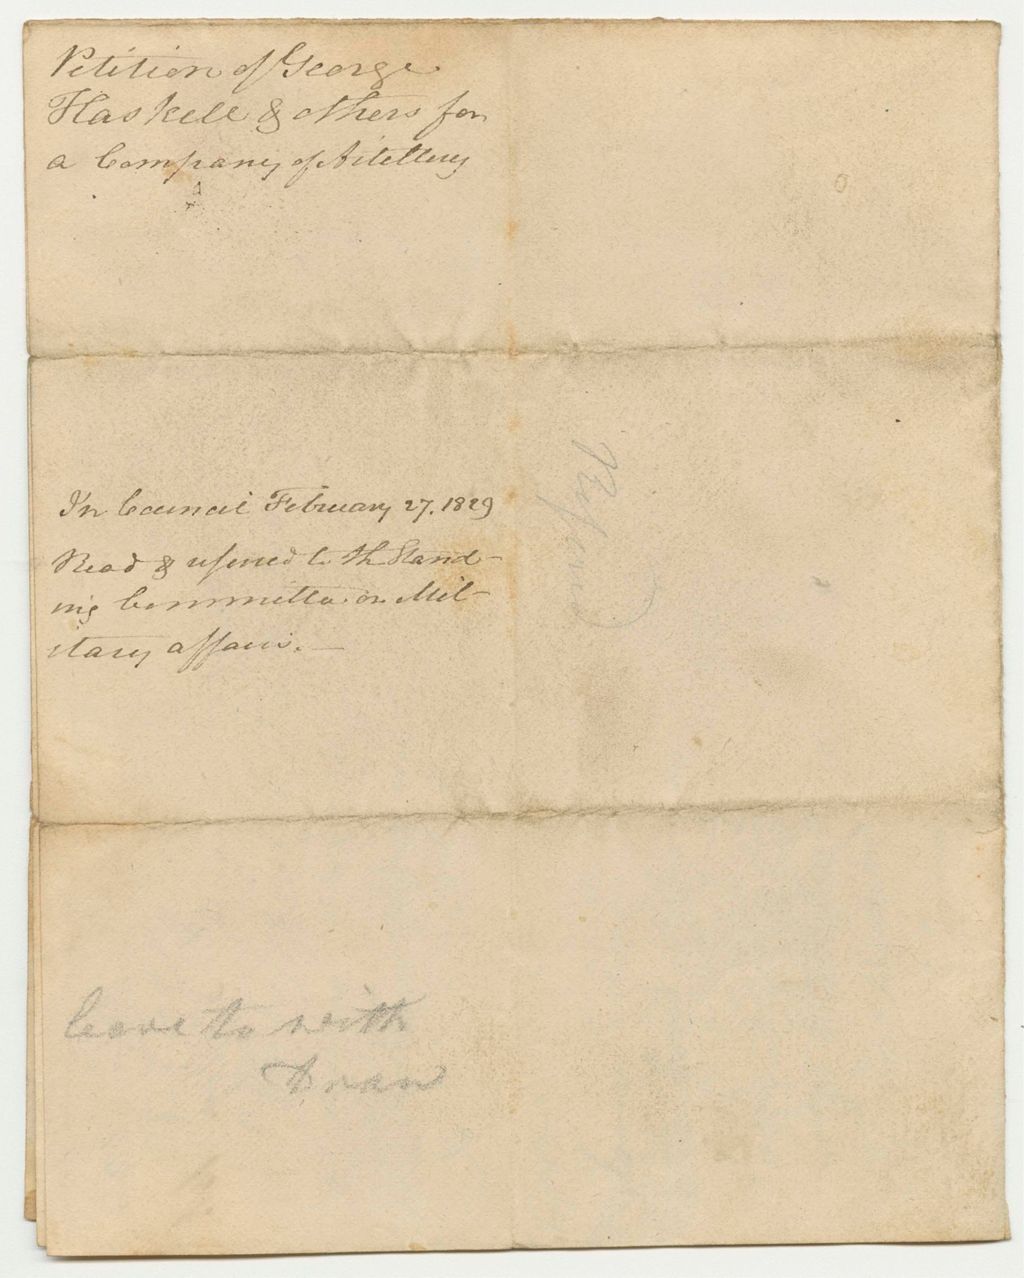 Petition of George
Haskell & others for
a Company of Artillery
In Council February 27. 1829
Read & referred to the Stand-
ing Committee on Mil-
itary affairs. —
leave to with
draw